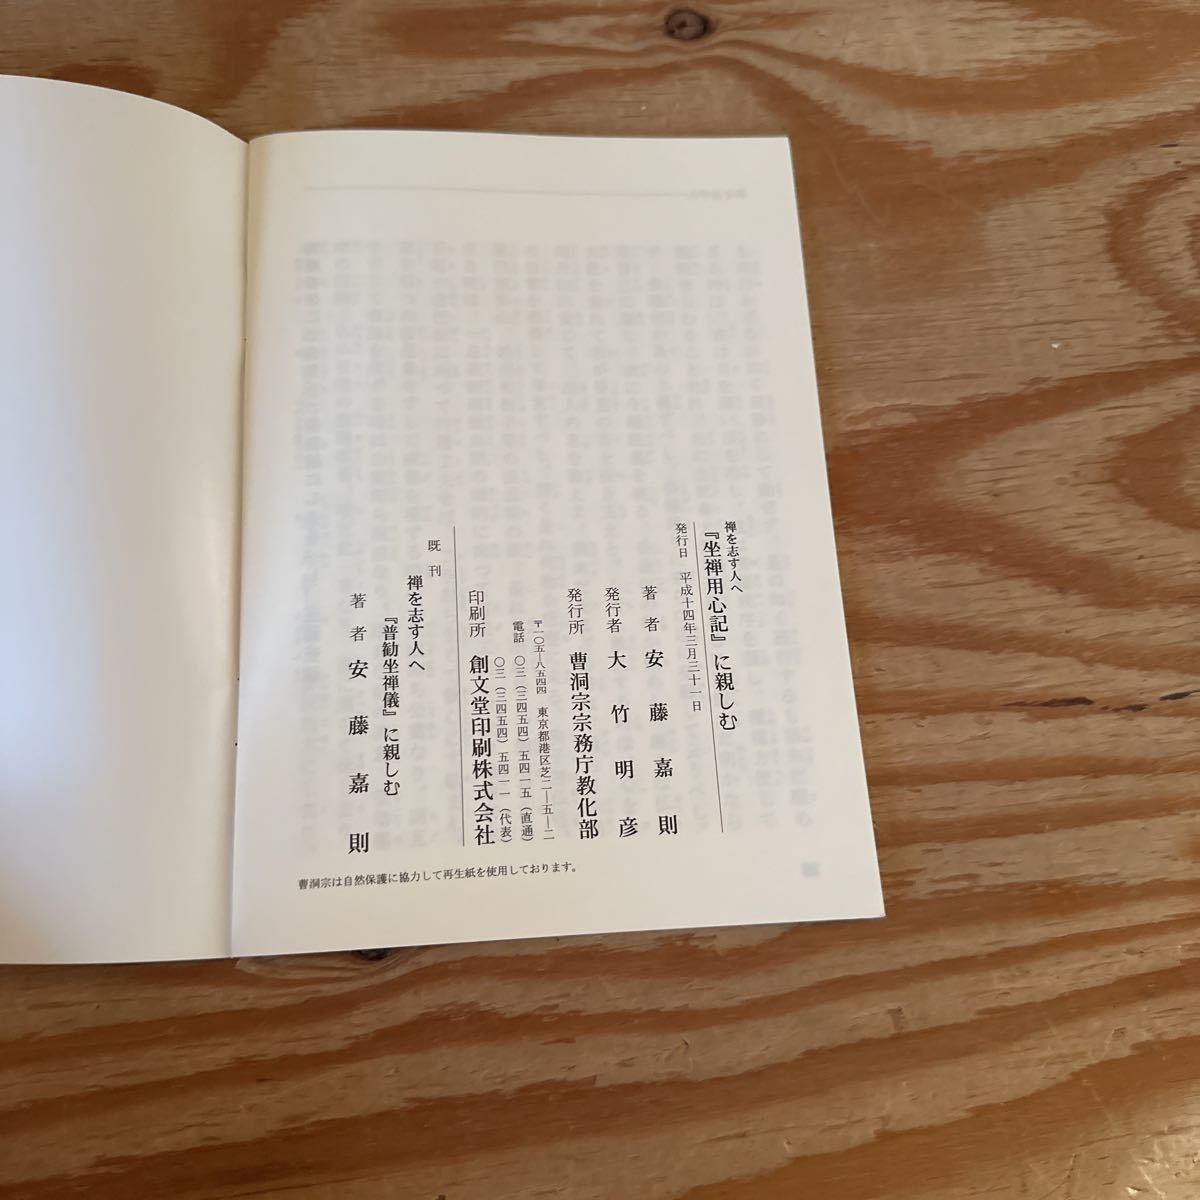 禅を志す人へ
『坐禅用心記』に親しむ
発行日 平成十四年三月三十一日
著者 安藤嘉則
発行者 大竹明彦
発行所 曹洞宗宗務庁教化部
〒一〇五―八五四四 東京都港区芝二―五―二
電話 〇三(三四五四)五四一五(直通)
〇三(三四五四)五四一一(代表)
印刷所 創文堂印刷株式会社
既刊
禅を志す人へ
『普勧坐禅儀』に親しむ
著者 安藤嘉則
曹洞宗は自然保護に協力して再生紙を使用しております。